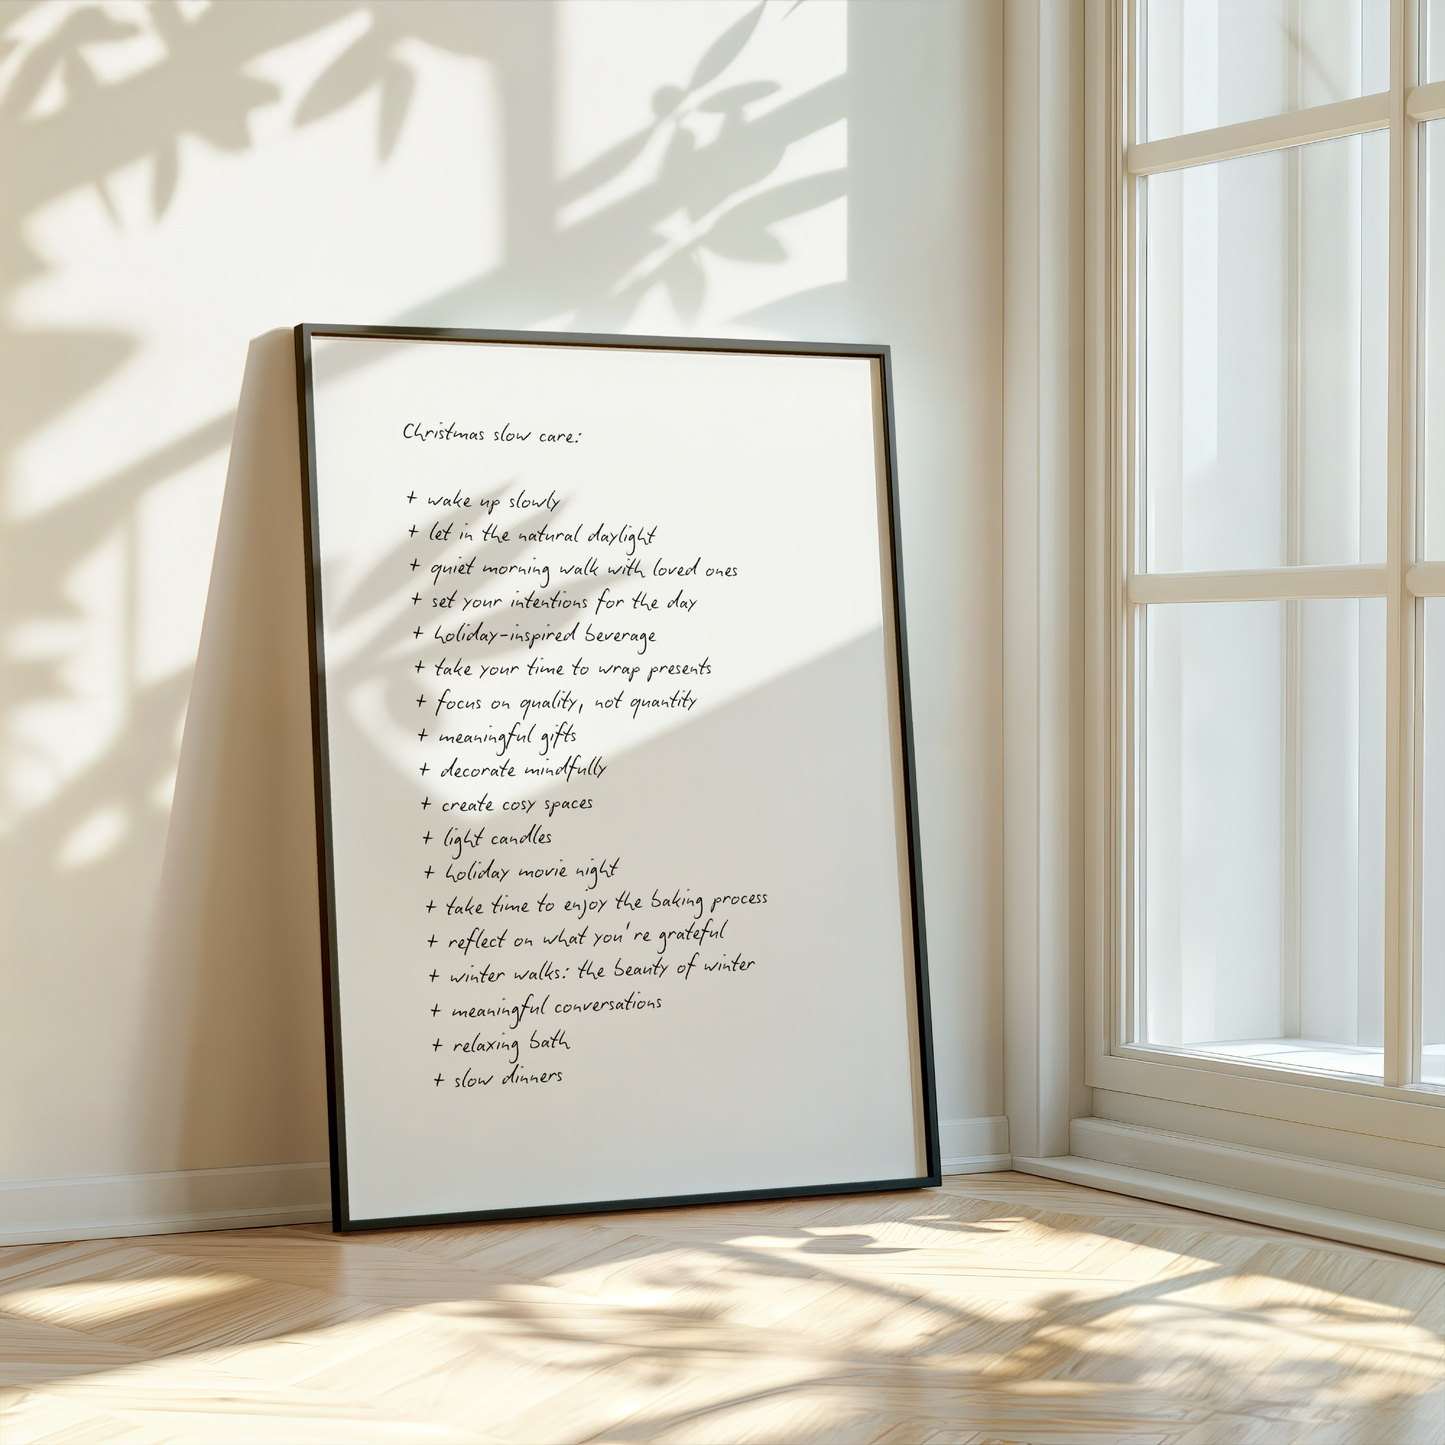 Christmas slow care:
+ wake up slowly
+ let in the natural daylight
+ quiet morning walk with loved ones
+ set your intentions for the day
+ holiday-inspired beverage
+ take your time to wrap presents
+ focus on quality, not quantity
+ meaningful gifts
+ decorate mindfully
+ create cosy spaces
+ light candles
+ holiday movie night
+ take time to enjoy the baking process
+ reflect on what you're grateful
+ winter walks: the beauty of winter
+ meaningful conversations
+ relaxing bath
+ slow dinners